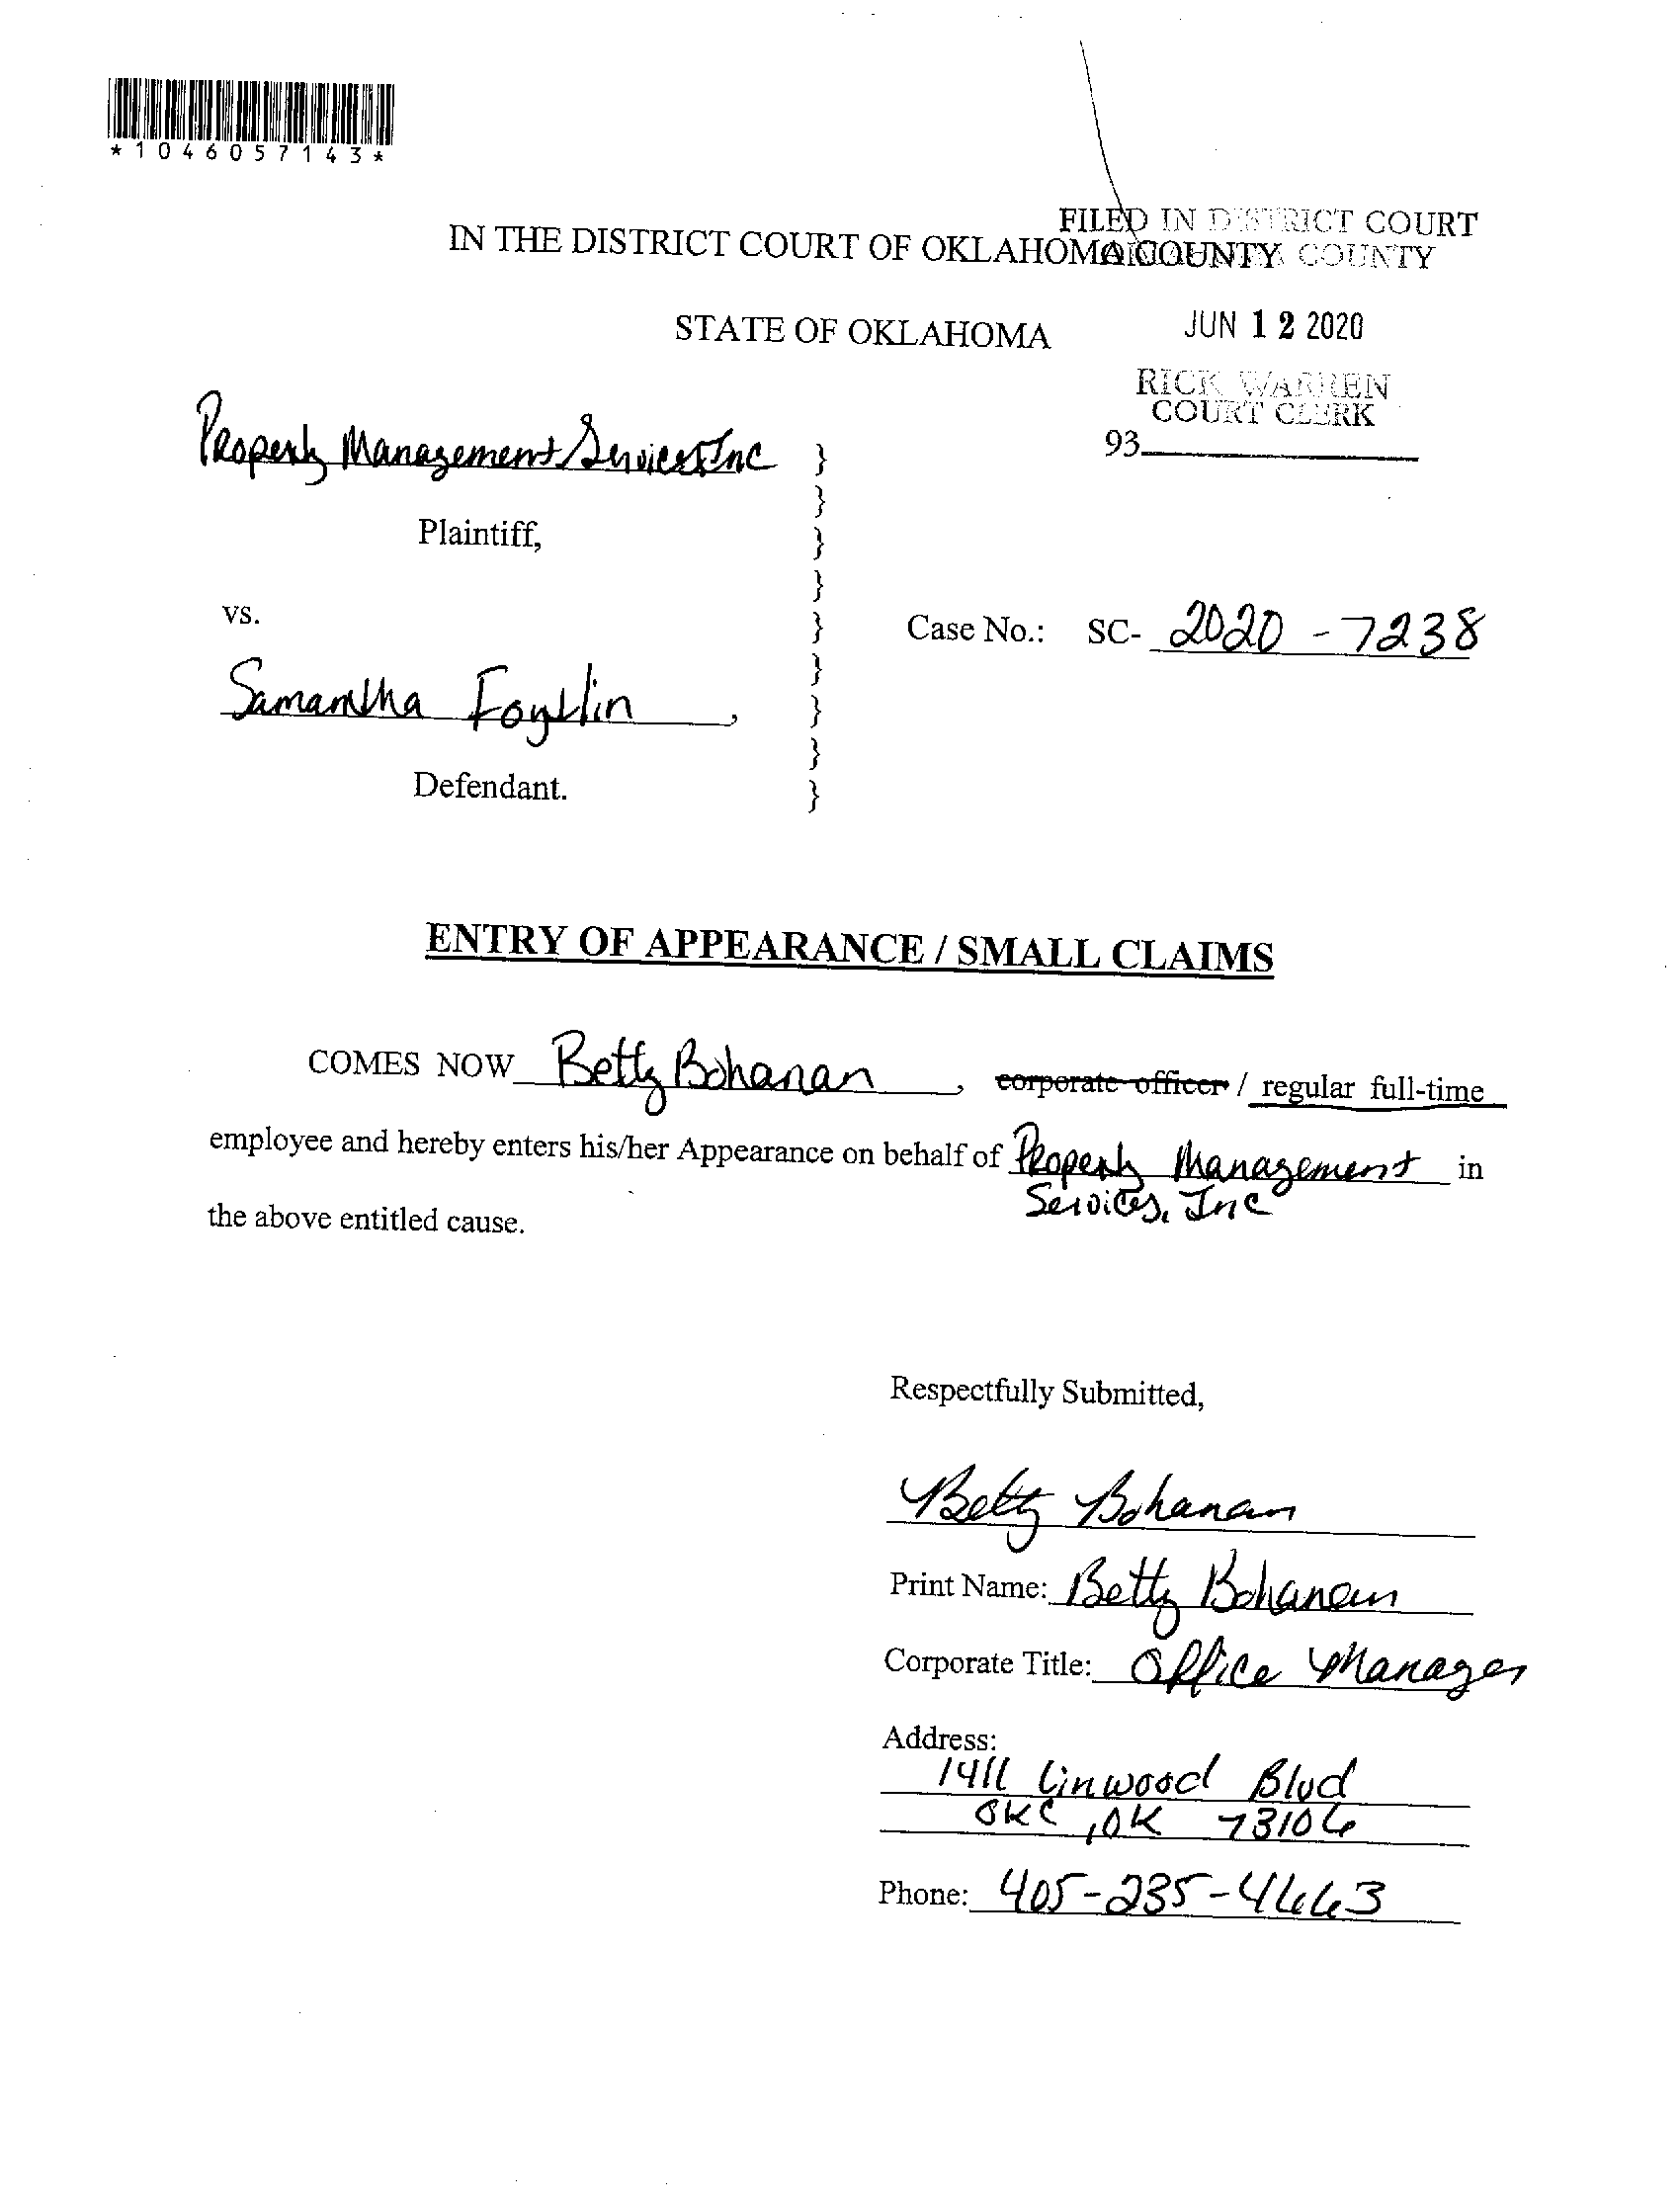 *1046057143*
FILED IN DISTRICT COURT
IN THE DISTRICT COURT OF OKLAHOMA COUNTY
OKLAHOMA COUNTY
STATE OF OKLAHOMA
JUN 12 2020
RICK WARREN
COURT CLERK
93
Property Management Services Inc }
}
Plaintiff, }
}
vs. } Case No.: SC- 2020 - 7238
}
Samantha Foytlin, }
}
Defendant. }
ENTRY OF APPEARANCE / SMALL CLAIMS
COMES NOW Betty Bohanan, corporate officer / regular full-time
employee and hereby enters his/her Appearance on behalf of Property Management in
Services, Inc
the above entitled cause.
Respectfully Submitted,
Betty Bohanan
Print Name: Betty Bohanan
Corporate Title: Office Manager
Address:
1411 Linwood Blvd
OKC, OK 73106
Phone: 405-235-4663